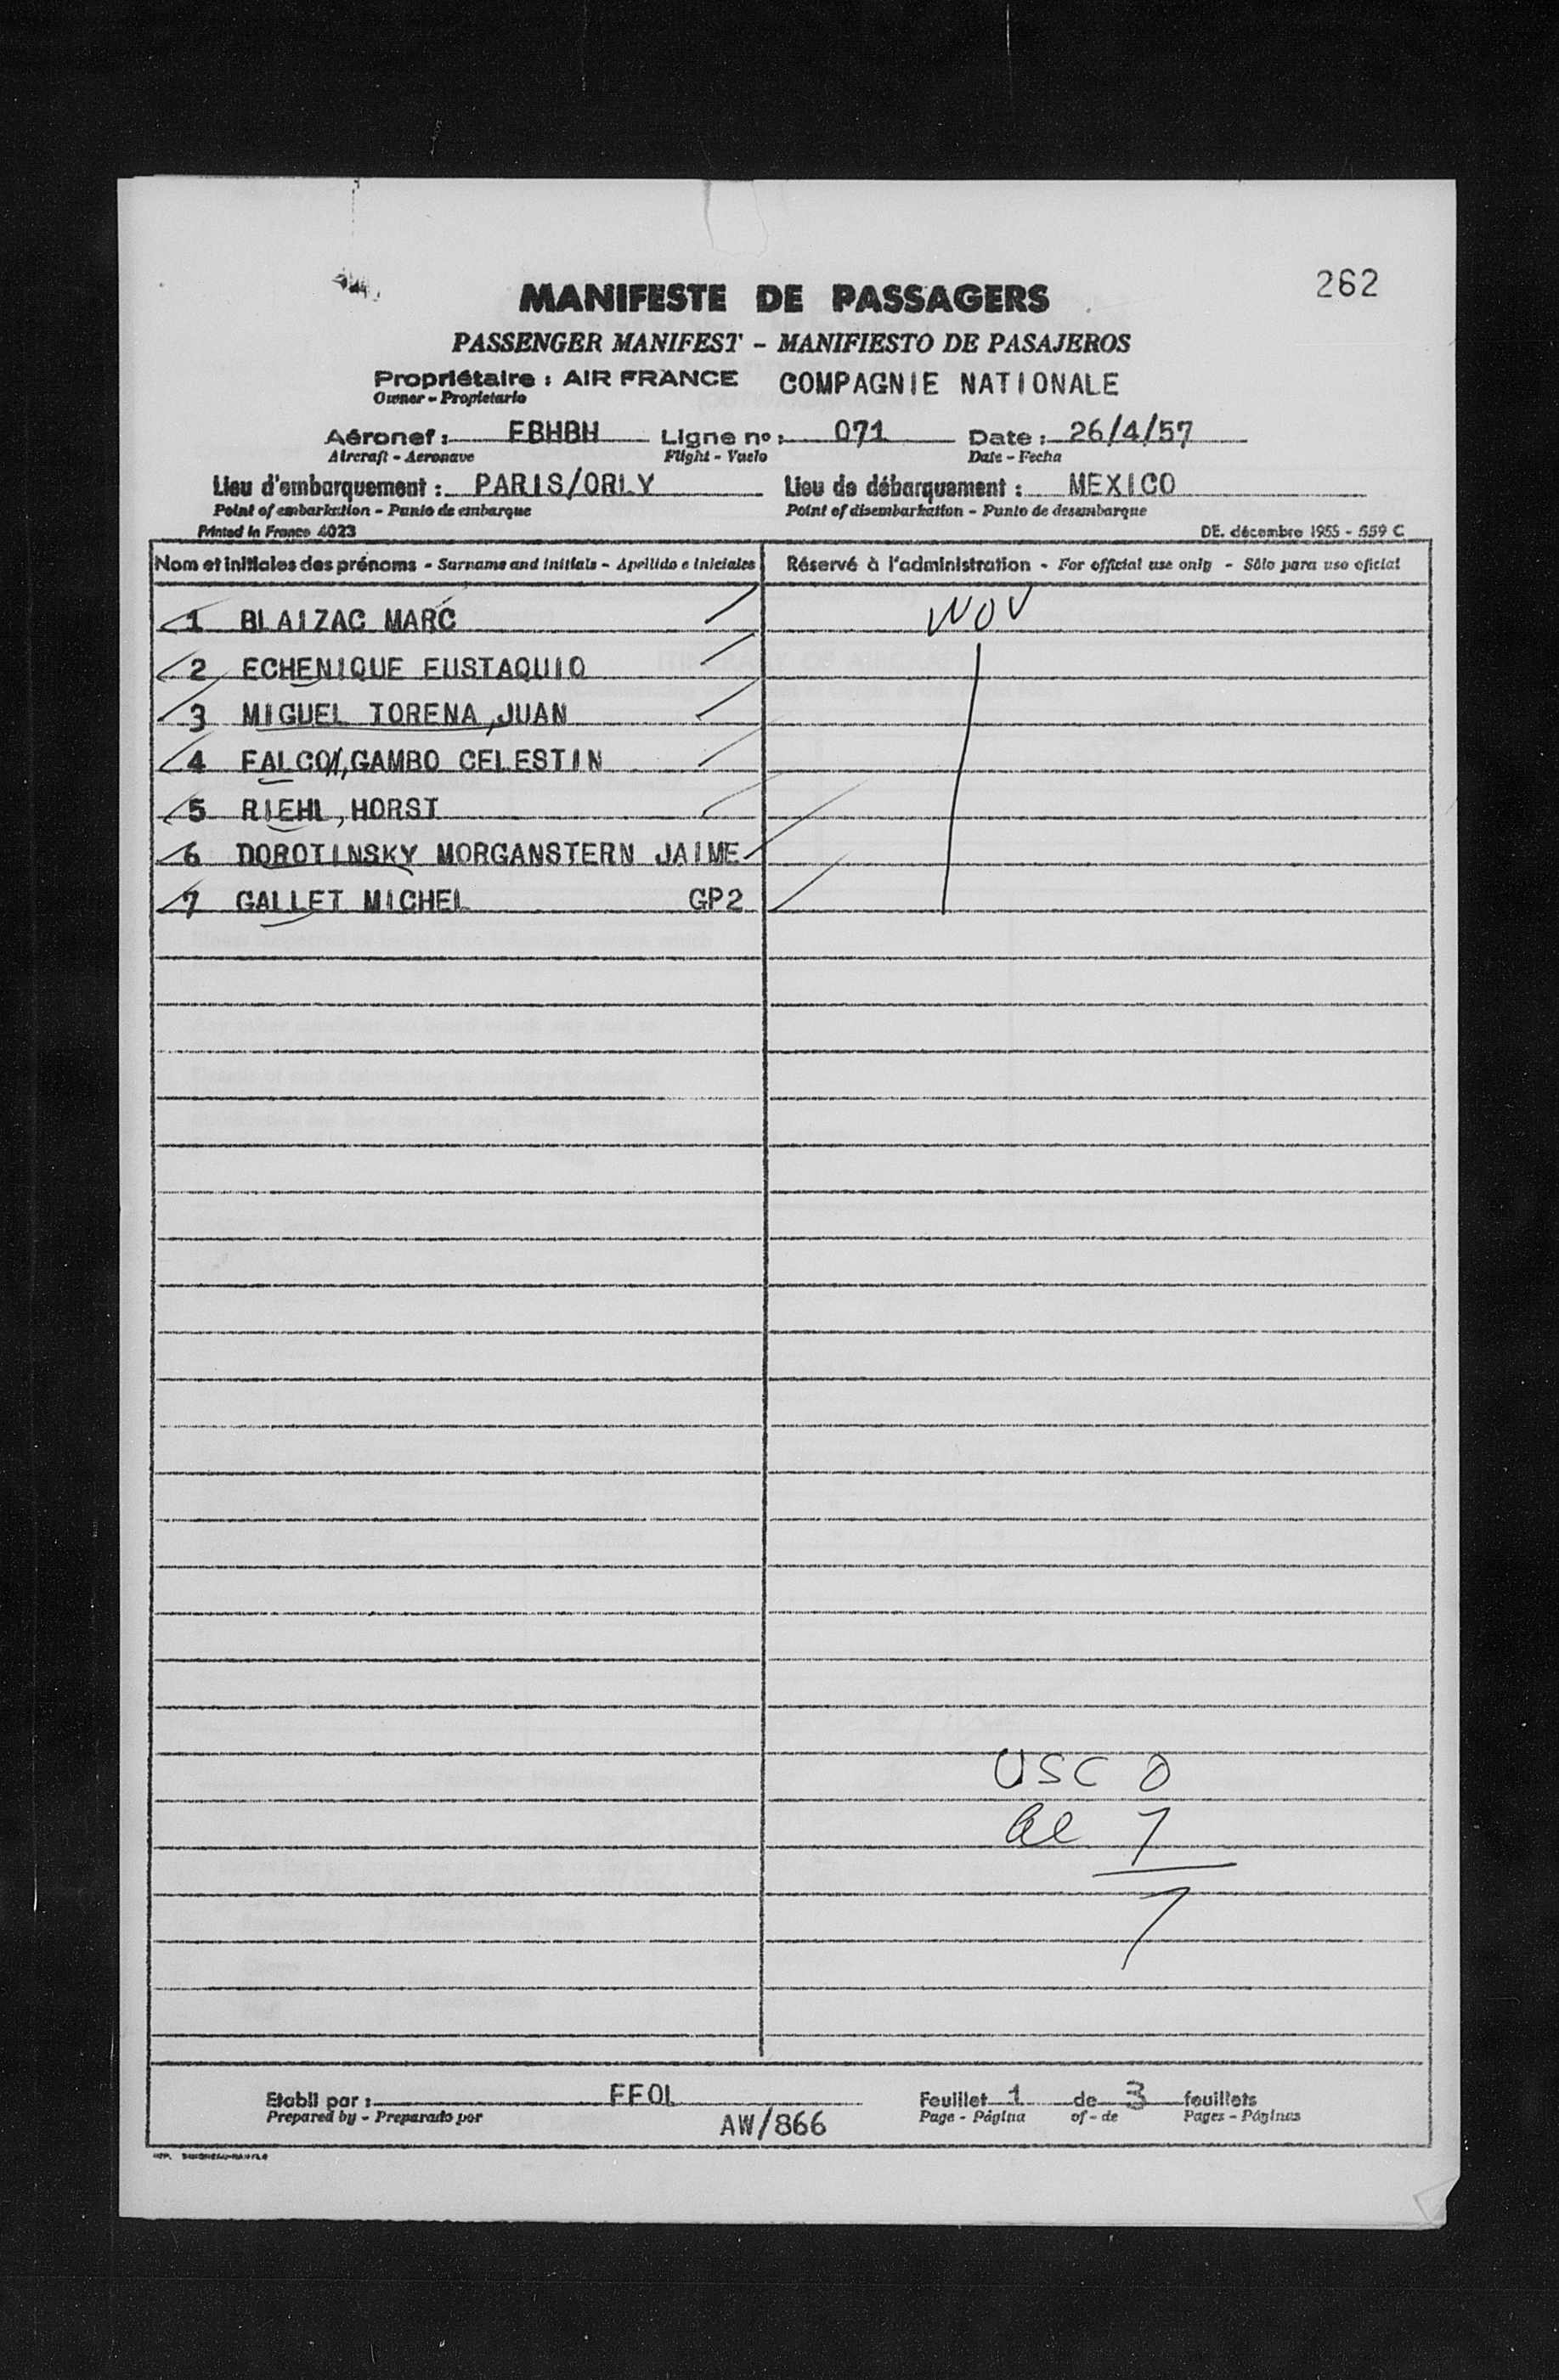 262
MANIFESTE DE PASSAGERS
PASSENGER MANIFEST - MANIFIESTO DE PASAJEROS
Propriétaire : AIR FRANCE COMPAGNIE NATIONALE
Owner - Propietario
Aéronef : FBHBH Ligne no : 071 Date : 26/4/57
Aircraft - Aeronave Flight - Vuelo Date - Fecha
Lieu d'embarquement : PARIS/ORLY Lieu de débarquement : MEXICO
Point of embarkation - Punto de embarque Point of disembarkation - Punto de desembarque
Printed in France 4023 DE. décembre 1955 - 559 C
Nom et initiales des prénoms - Surname and initials - Apellido e iniciales Réservé à l'administration - For official use only - Sólo para uso oficial
1 BLAIZAC MARC WOV
2 ECHENIQUE EUSTAQUIO
3 MIGUEL TORENA, JUAN
4 FALCON, GAMBO CELESTIN
5 RIEHL, HORST
6 DOROTINSKY MORGANSTERN JAIME
7 GALLET MICHEL GP2
USC 0
al 7
7
Etabli par : FFOL Feuillet 1 de 3 feuillets
Prepared by - Preparado por AW/866 Page - Página of - de Pages - Páginas